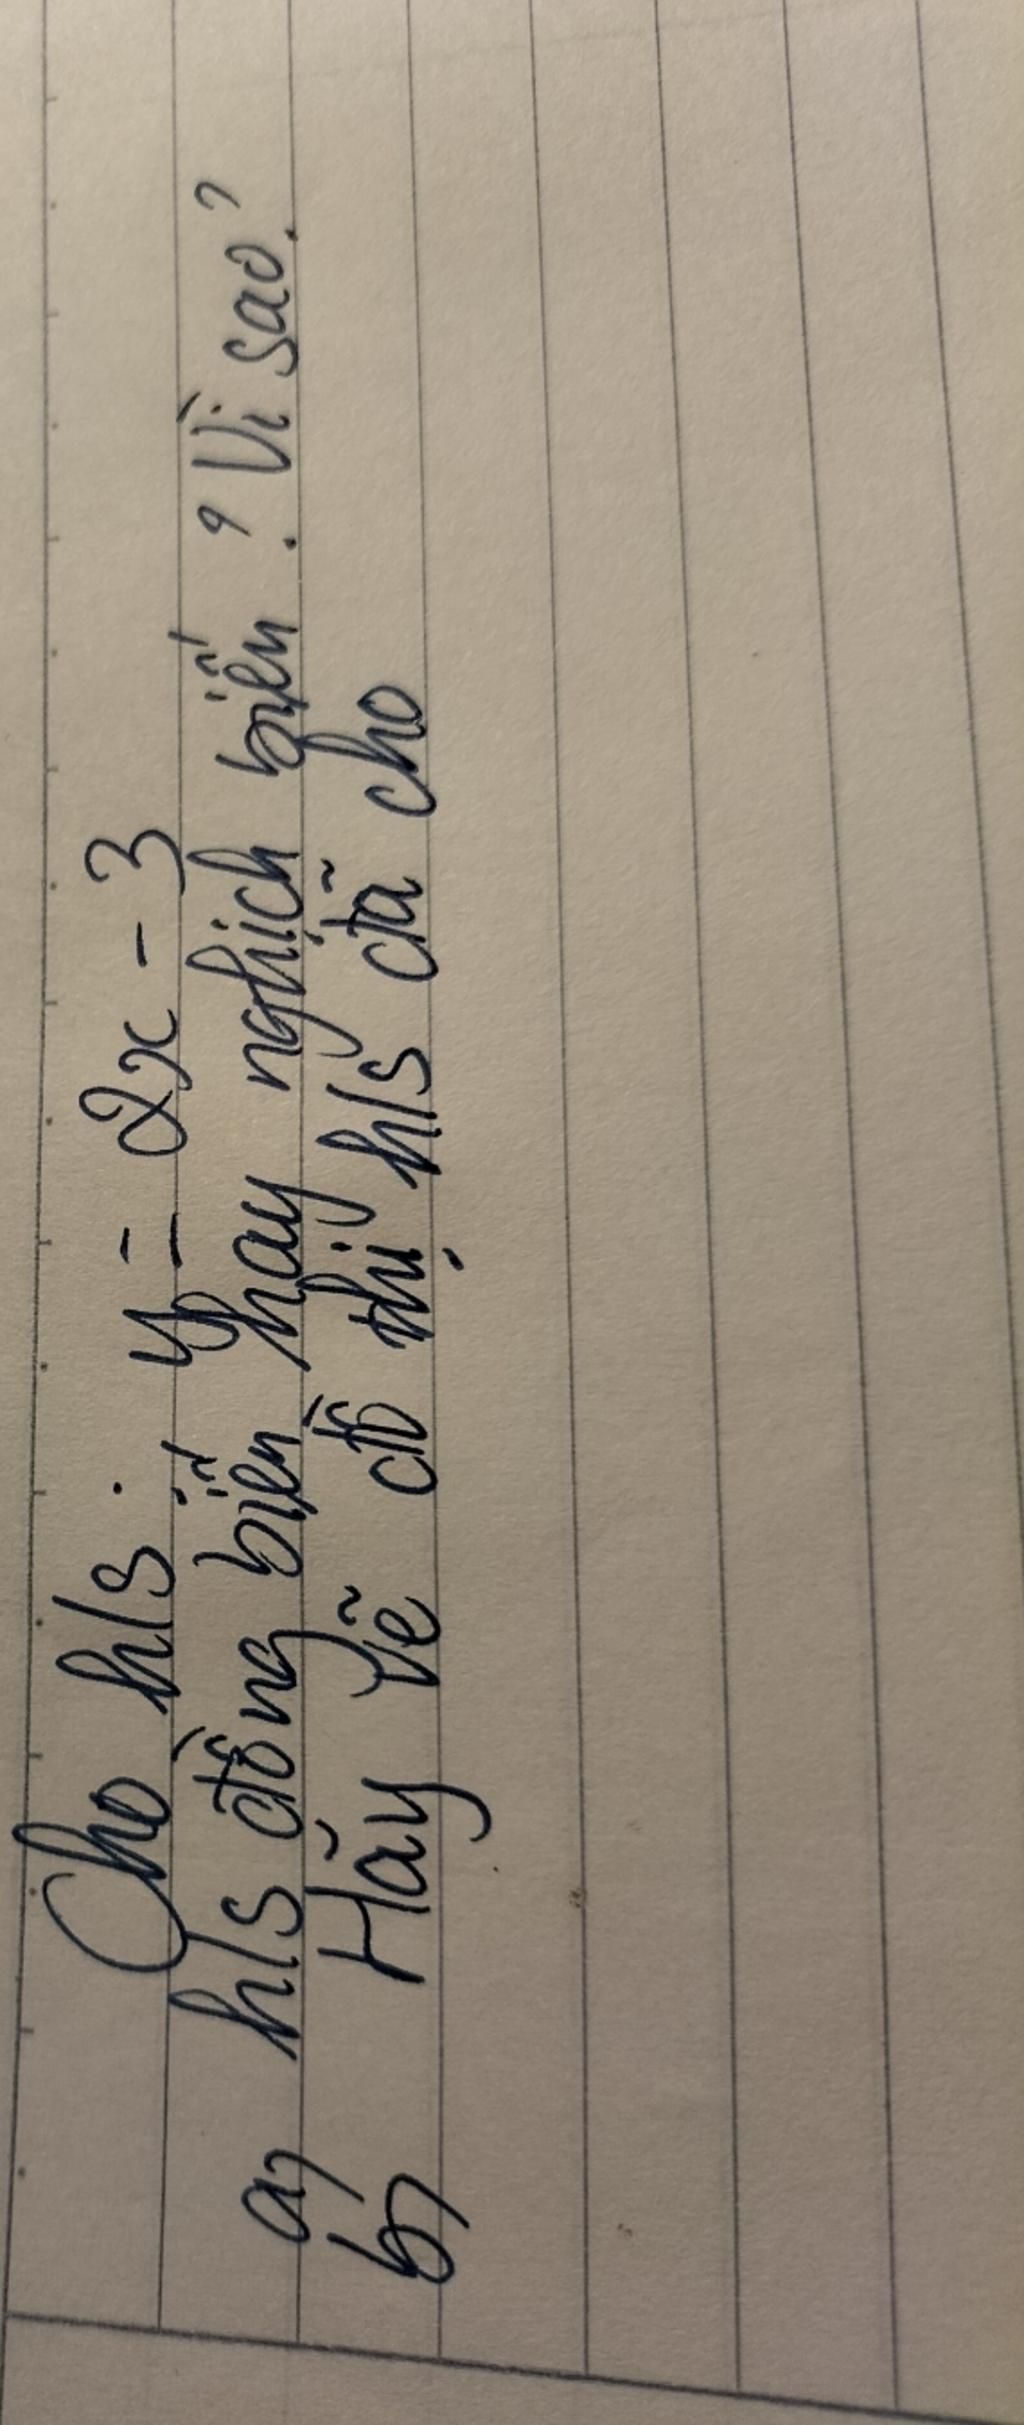 Cho h/s : y = 2x - 3
a) h/s đồng biến hay nghịch biến ? Vì sao ?
b) Hãy vẽ đồ thị h/s đã cho